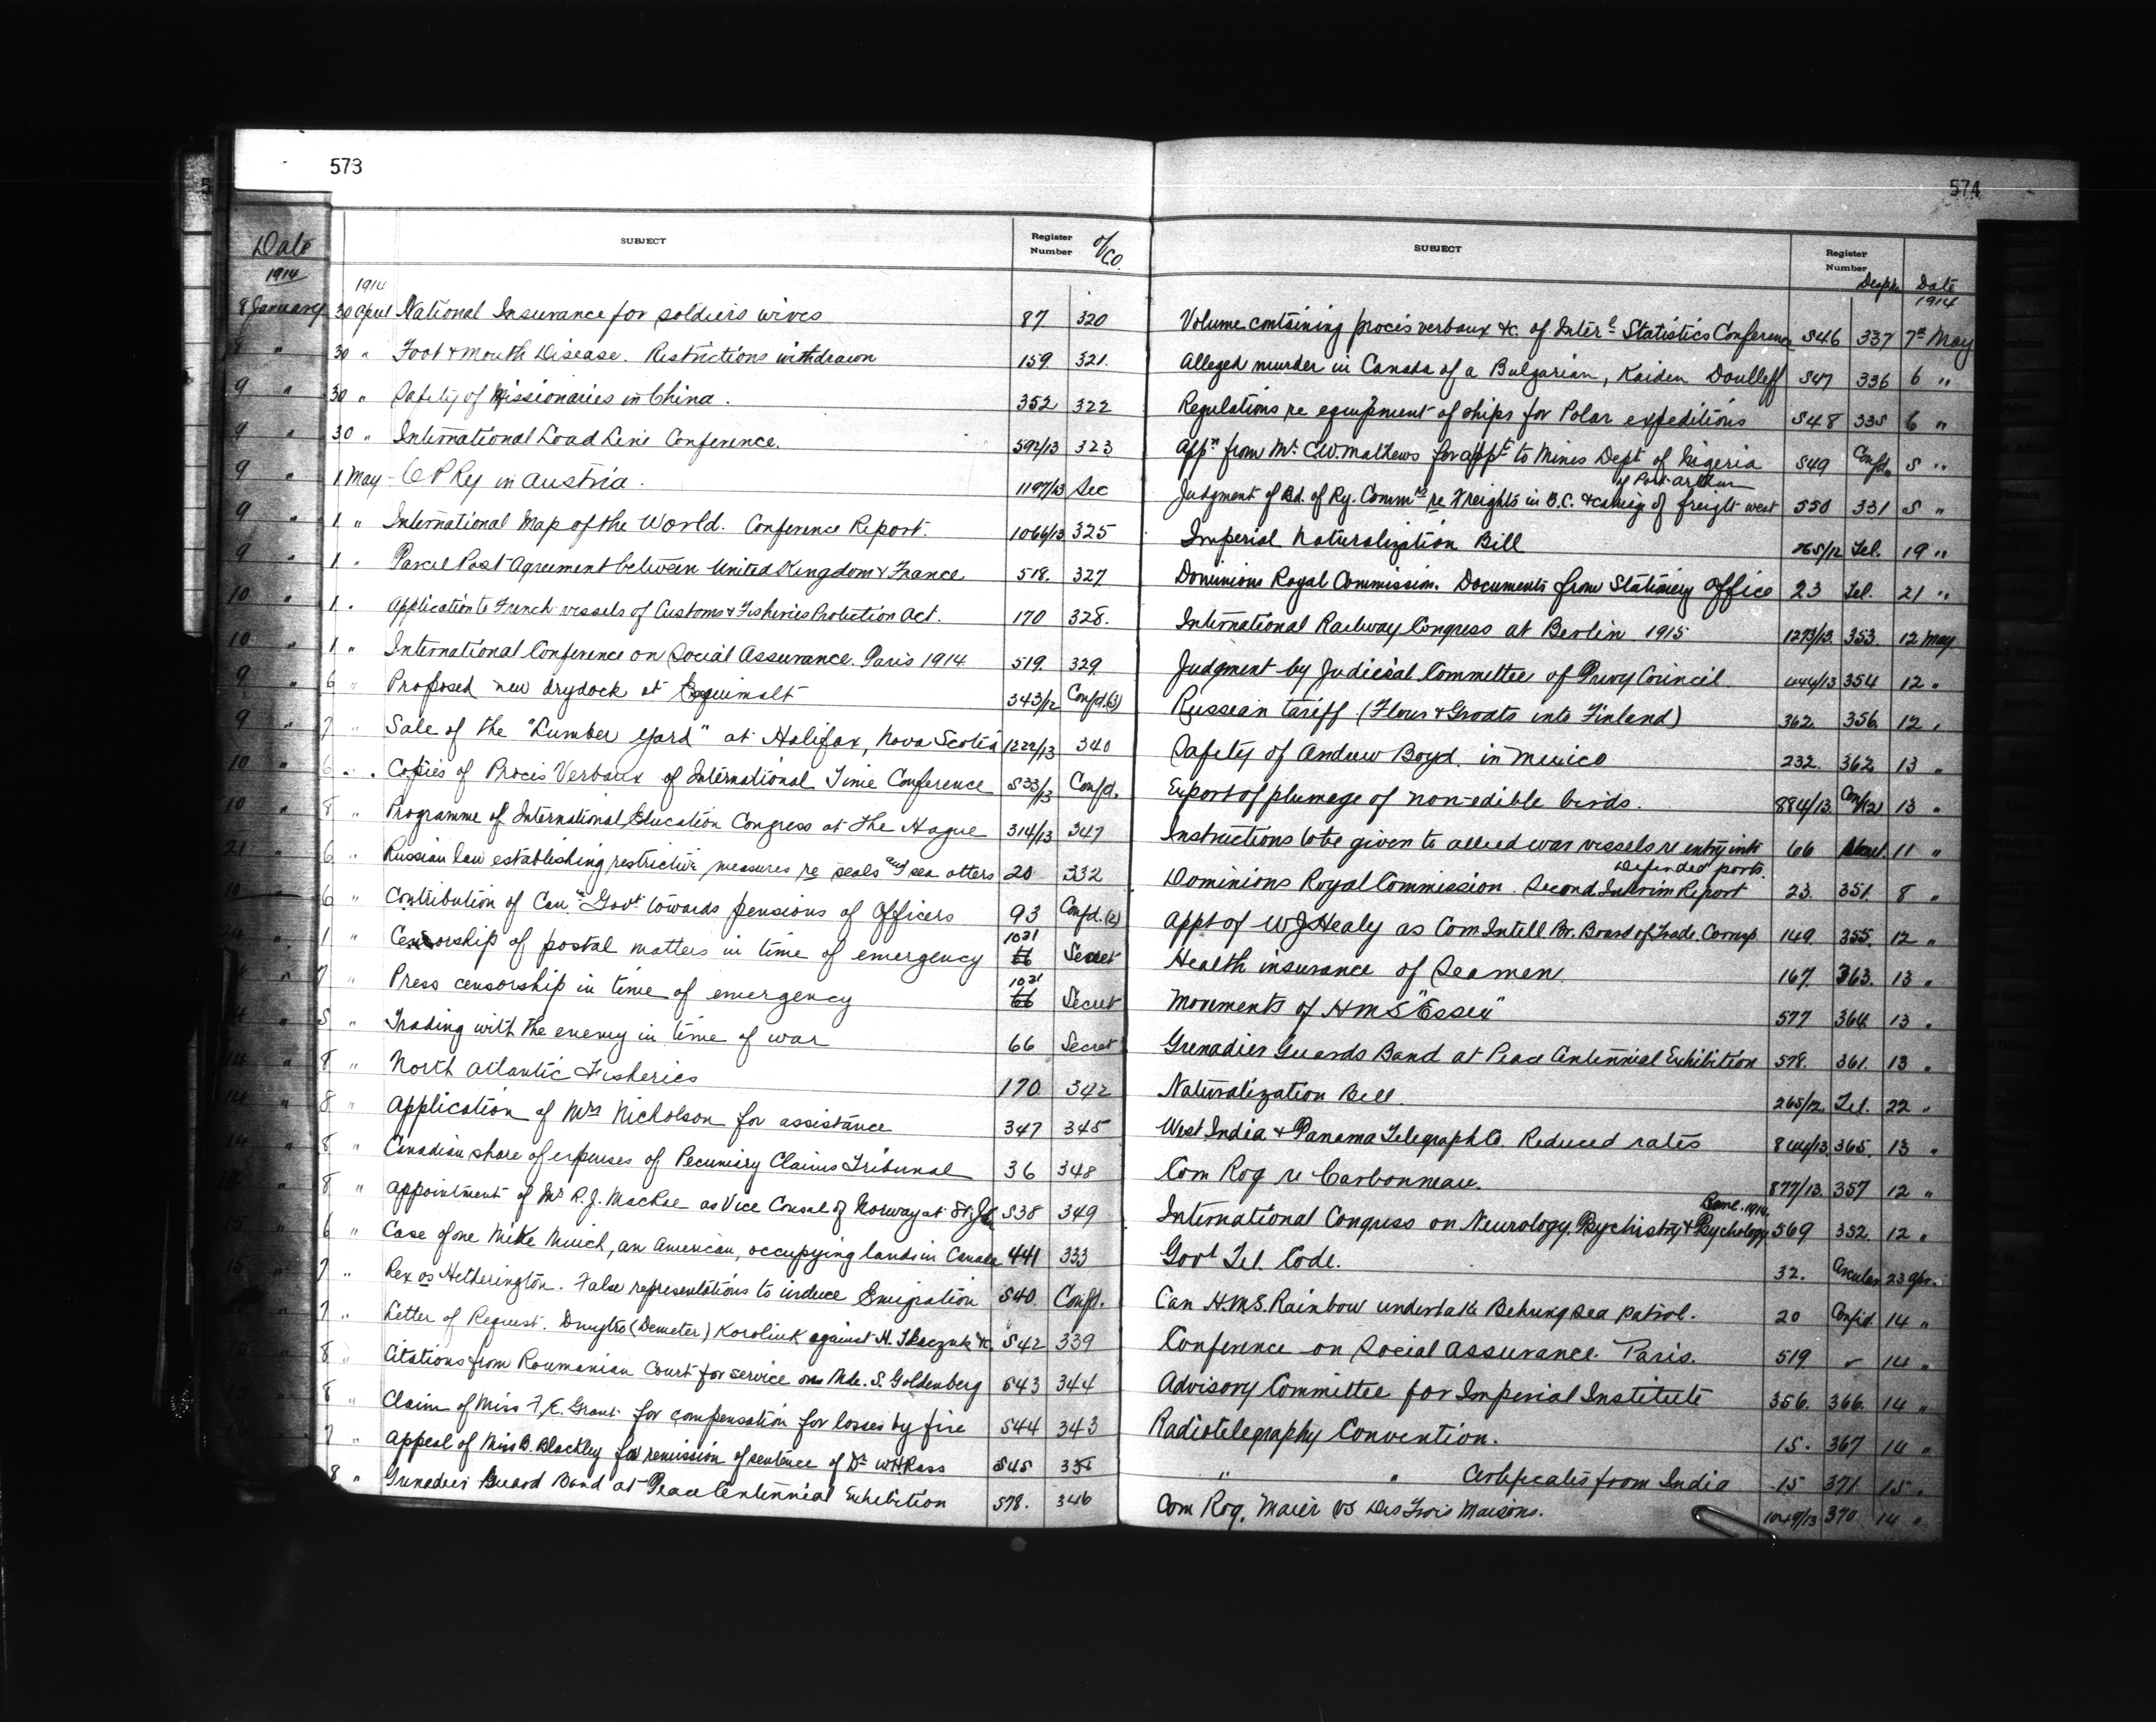 573
Date SUBJECT Register Number O/Co.
1914 1914
8 January 30 April National Insurance for soldiers wives 87 320
30 " Foot & mouth Disease. Restrictions withdrawn 159 321.
9 " 30 " Safety of Missionaries in China. 352 322
9 " 30 " International Load Line Conference. 592/13 323
9 " 1 May C P Ry in Austria. 1197/13 Sec
9 " 1 " International Map of the World. Conference Report. 1066/13 325
9 " 1 " Parcel Post Agreement between United Kingdom & France 518. 327
10 " 1 " Application to French vessels of Customs & Fisheries Protection Act. 170 328.
10 " 1 " International Conference on Social Assurance. Paris 1914 519. 329.
9 " 6 " Proposed new drydock at Esquimalt 343/12 Confd.(3)
9 " 7 " Sale of the "Lumber Yard" at Halifax, Nova Scotia 1222/13 340
10 " 6 " Copies of Procis Verbaux of International Time Conference 533/13 Confd.
10 " 8 " Programme of International Education Congress at the Hague 314/13 347
21 " 6 " Russian law establishing restrictive measures re seals and sea otters 20 332
10 " 6 " Contribution of Can. Govt. towards pensions of Officers 93 Confd.(2)
1 " Censorship of postal matters in time of emergency 1031 66 Secret
7 " Press censorship in time of emergency 1031 66 Secret
5 " Trading with the enemy in time of war 66 Secret
14 " 8 " North Atlantic Fisheries 170 342
14 " 8 " Application of Mrs Nicholson for assistance 347 345
14 " 8 " Canadian share of expenses of Pecuniary Claims Tribunal 36 348
8 " Appointment of Mr R. J. MacRae as Vice Consul of Norway at St. 538 349
15 " 6 " Case of one Mike Muich, an American, occupying lands in Canada 441 333
15 " 7 " Rex vs Hetherington. False representations to induce Emigration 540. Confd.
7 " Letter of Request. Dmytro (Demeter) Koroliuk against H. Tkaczuk &c. 542 339
8 " Citations from Roumanian Court for service on Mde. S. Goldenberg 543 344
8 " Claim of Miss F. E. Grant for compensation for losses by fire 544 343
7 " Appeal of Miss B. Blackley for remission of sentence of Dr W H Ross 545
8 " Grenadier Guard Band at Peace Centennial Exhibition 578. 346
574
SUBJECT Register Number Desph. Date
1914
Volume containing procis verbaux &c. of Interl Statistics Conference 546 337 7th May
Alleged murder in Canada of a Bulgarian, Kaiden Doulleff 547 336 6 "
Regulations re equipment of ships for Polar expeditions 548 335 6 "
Appn from Mr. C.W. Mathews for appt to Mines Dept of Nigeria 549 Confd. 5 "
of Port Arthur
Judgment of Bd. of Ry. Commrs re Freights in B.C. & of freight west 550 331 5 "
Imperial Naturalization Bill 265/12 Tel. 19 "
Dominions Royal Commission. Documents from Stationery Office 23 Tel. 21 "
International Railway Congress at Berlin 1915 1273/13. 353. 12 May
Judgment by Judicial Committee of Privy Council. 354 12 "
Russian tariff (Flour & Groats into Finland) 362. 356. 12 "
Safety of Andrew Boyd. in Mexico 232. 362 13 "
Export of plumage of non-edible birds. 884/13. Conf(2) 13 "
Instructions to be given to allied war vessels re entry into 66 11 "
Defended ports.
Dominions Royal Commission. Second Interim Report 23. 351. 8 "
Appt of W J Healy as Com Intell. Br. Board of Trade. Corresp 149. 355. 12 "
Health insurance of Seamen. 167. 363. 13 "
Movements of H M S "Essex" 577 364. 13 "
Grenadier Guards Band at Peace Centennial Exhibition 578. 361. 13 "
Naturalization Bill. 265/12. Tel. 22 "
West India & Panama Telegraph Co. Reduced rates 844/13. 365. 13 "
Com Rog re Carbonneau. 877/13. 357 12 "
Berne. 1914.
International Congress on Neurology, Psychistry & Psychology 569 352. 12 "
Govt Tel. Code. 32. Circular 23 Apr.
Can H.M.S. Rainbow undertake Behring Sea patrol. 20 Confid. 14 "
Conference on Social Assurance. Paris. 519. 14 "
Advisory Committee for Imperial Institute 356. 366. 14 "
Radiotelegraphy Convention. 15. 367 14 "
" " Certificates from India 15 371 15 "
Com Rog. Maier vs Des Trois Maisons. 1049/13 370 14 "